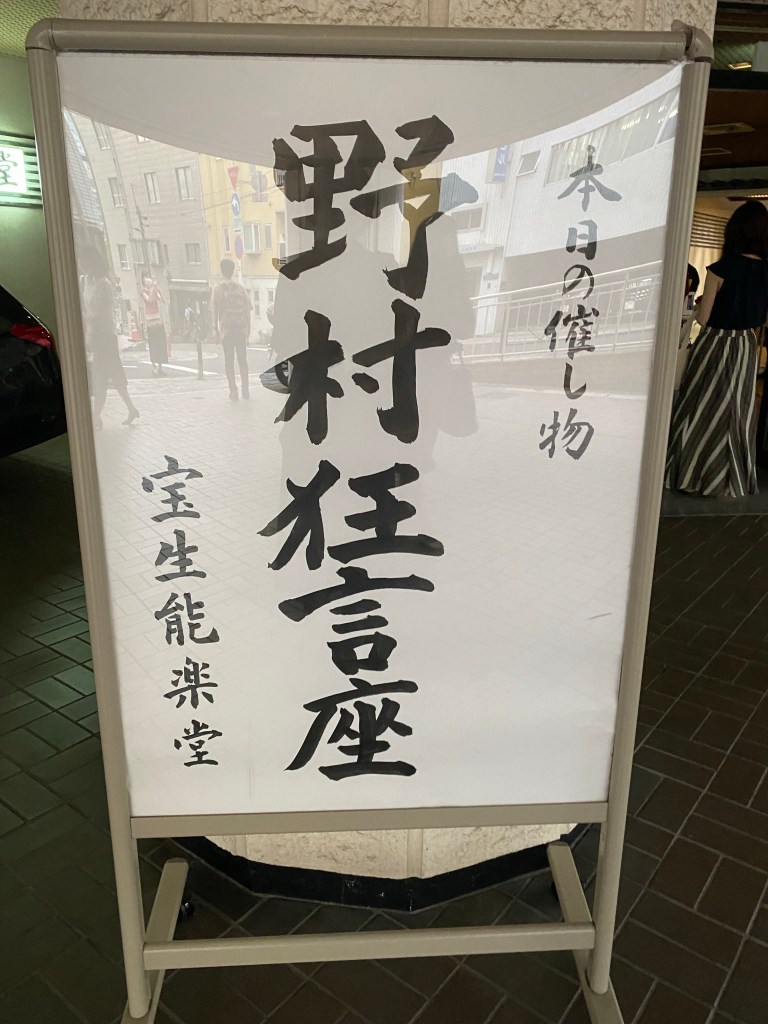 本日の催し物
野村狂言座
宝生能楽堂
堂